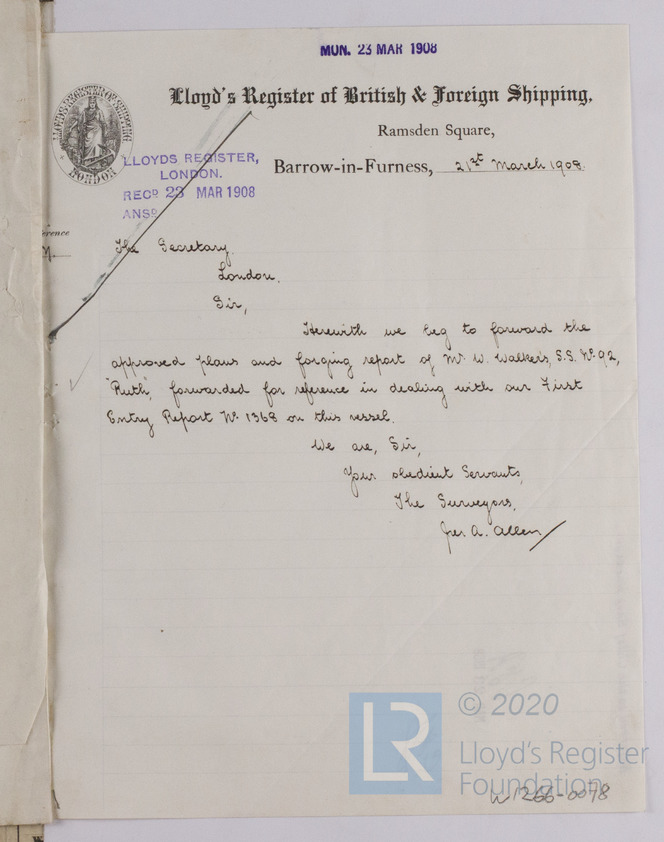 MON. 23 MAR 1908
Lloyd's Register of British & Foreign Shipping,
Ramsden Square,
LLOYD'S REGISTER,
LONDON.
RECD 23 MAR 1908
ANSD
Barrow-in-Furness, 21st March 1908.
The Secretary.
London.
Sir,
Herewith we beg to forward the
approved plans and forging report of Mr. W. Walker's, S.S. No. 92,
"Ruth", forwarded for reference in dealing with our First
Entry Report No. 1368 on this vessel.
We are, Sir,
Your obedient Servants,
The Surveyors,
A. Allen
© 2020
LR
Lloyd's Register
Foundation
W1266-0078